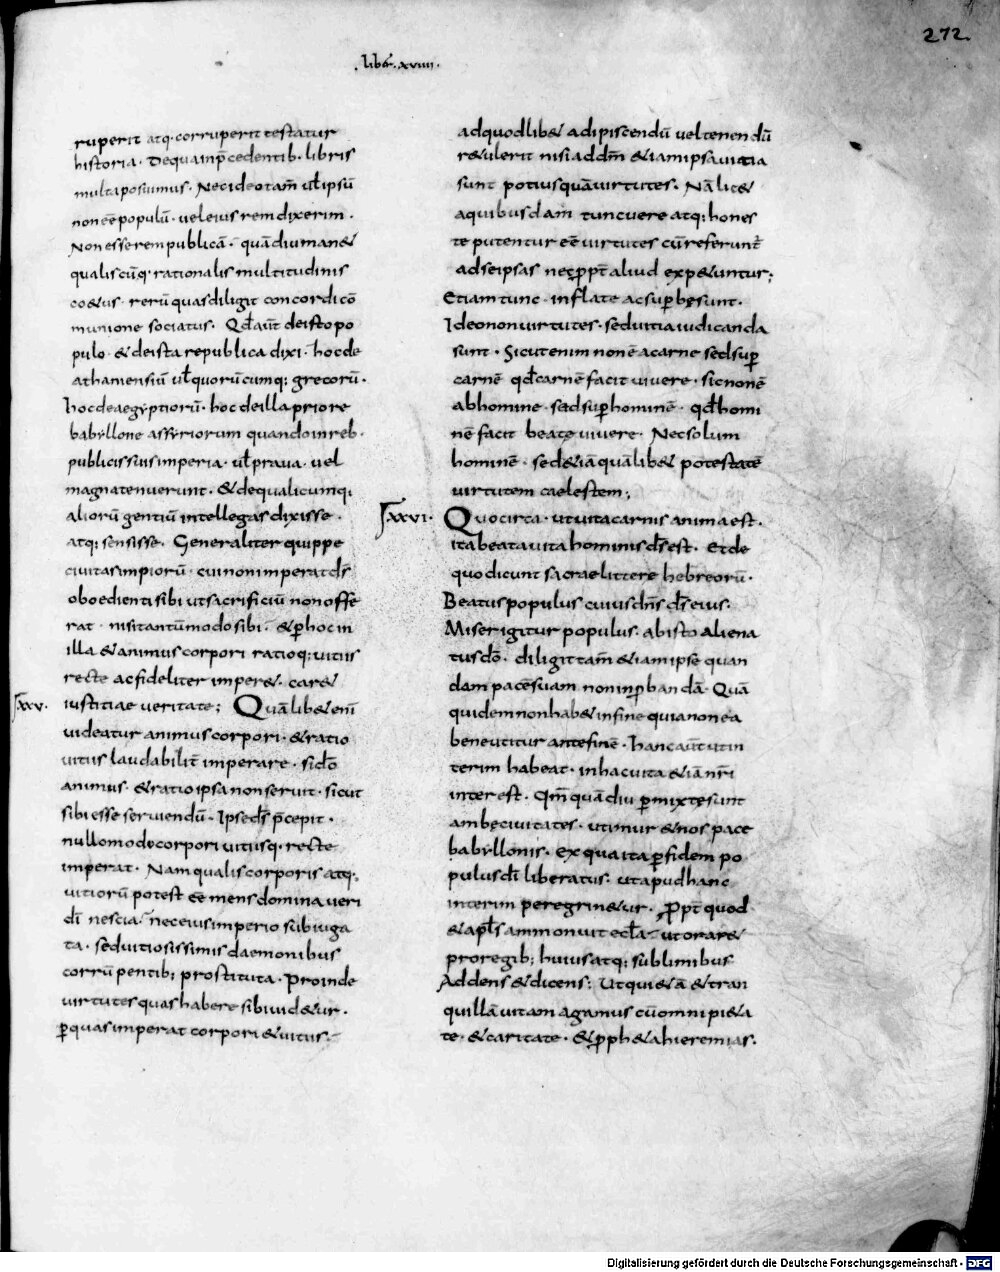 272.
.liber.xviiii.
ruperit atq· corruperit testatur
historia· Dequainp̄cedentib· libris
multaposuimus· Necideotam̄ ul̄ ipsū
nonēēpopulū· ueleiusremdixerim·
Nonesserempublicā· quādiumanet
qualiscūq· rationalismultitudinis
coetus· rerū quasdiligit concordicō
munione sociatus· Qd̄aut̄ deistopo
pulo· &deistarepublicadixi· hocde
atheniensiū ul̄quorūcumq; grecorū·
hocdeaegyptiorū· hocdeillapriore
babyllone assyriorum quandoinreb·
publicissuisimperia· ul̄praua· uel
magnatenuerunt· &dequalicumq;
aliorū gentiū intellegar dixisse·
atq; sensisse· Generaliter quippe
ciuitasimpiorū· cuinonimperat d̄s
oboedientisibi utsacrificiū nonoffe
rat· nisitantūmodosibi· &p̄hocin
illa &animus corpori ratioq; uitiis
recte acfideliter imperet· caret
iustitiae ueritate;
xxv. Quālibetenī
uideatur animus corpori· &ratio
uitiis laudabilit̄ imperare· sid̄o
animus· &ratioipsanonseruit· sicut
sibi esse seruiendū· Ipsed̄s p̄cepit·
nullomodocorpori uitiisq· recte
imperat· Namqualiscorporisatq;
uitiorū potest ēē mensdomina ueri
d̄i nescia· neceiusimperio subiuga
ta· seduitiosissimis daemonibus
corrūpentib; prostituta· Proinde
uirtutesquashabere sibiuidetur·
p̄quasimperat corpori&uitiis·
adquodlibet adipiscendū ueltenendū
retulerit nisiadd̄m &iamipsauitia
sunt potiusquāuirtutes· Nā licet
aquibusdam tuncuere atq; hones
te putentur ēē uirtutes cūreferunt̄
adseipsas necp̄pt̄aliud expetuntur;
Etiamtunc· inflate acsup̄bęsunt·
Ideononuirtutes· seduitiaiudicanda
sunt· Sicutenim nonēacarne sedsup̄
carnē qd̄carnēfacit uiuere· sicnonē
abhomine· sedsup̄hominē· qd̄homi
nē facit beatę uiuere· Necsolum
hominē· sed&iāquālibet potestatē
uirtutem caelestem;
xxvi· Quocirca· utuitacarnis animaest·
itabeatauitahominisd̄sest· Etde
quodicunt sacraelittere hebreorū·
Beatuspopulus cuiusdn̄s d̄seius·
Miserigitur populus· abisto aliena
tusd̄o· diligittam̄ &iamipse quan
dam pacēsuam noninp̄bandā· Quā
quidemnonhabetinfinequianonea
beneutitur antefinē· Hancaūtutin
terim habeat· inhacuita &iān̄ri
interest· Qm̄quādiu p̄mixtęsunt
ambęciuitates· utimur &nos pace
babyllonis· exquaitap̄fidem po
pulusd̄i liberatus· utapudhanc
interim peregrinetur· p̄pt̄quod
&apl̄s ammonuit ecl̄a· utoraret
proregib; huiusatq; sublimibus
Addens &dicens; Utquietā &tran
quillāuitam agamus cūomnipieta
te· &caritate· &p̄phetahieremias·